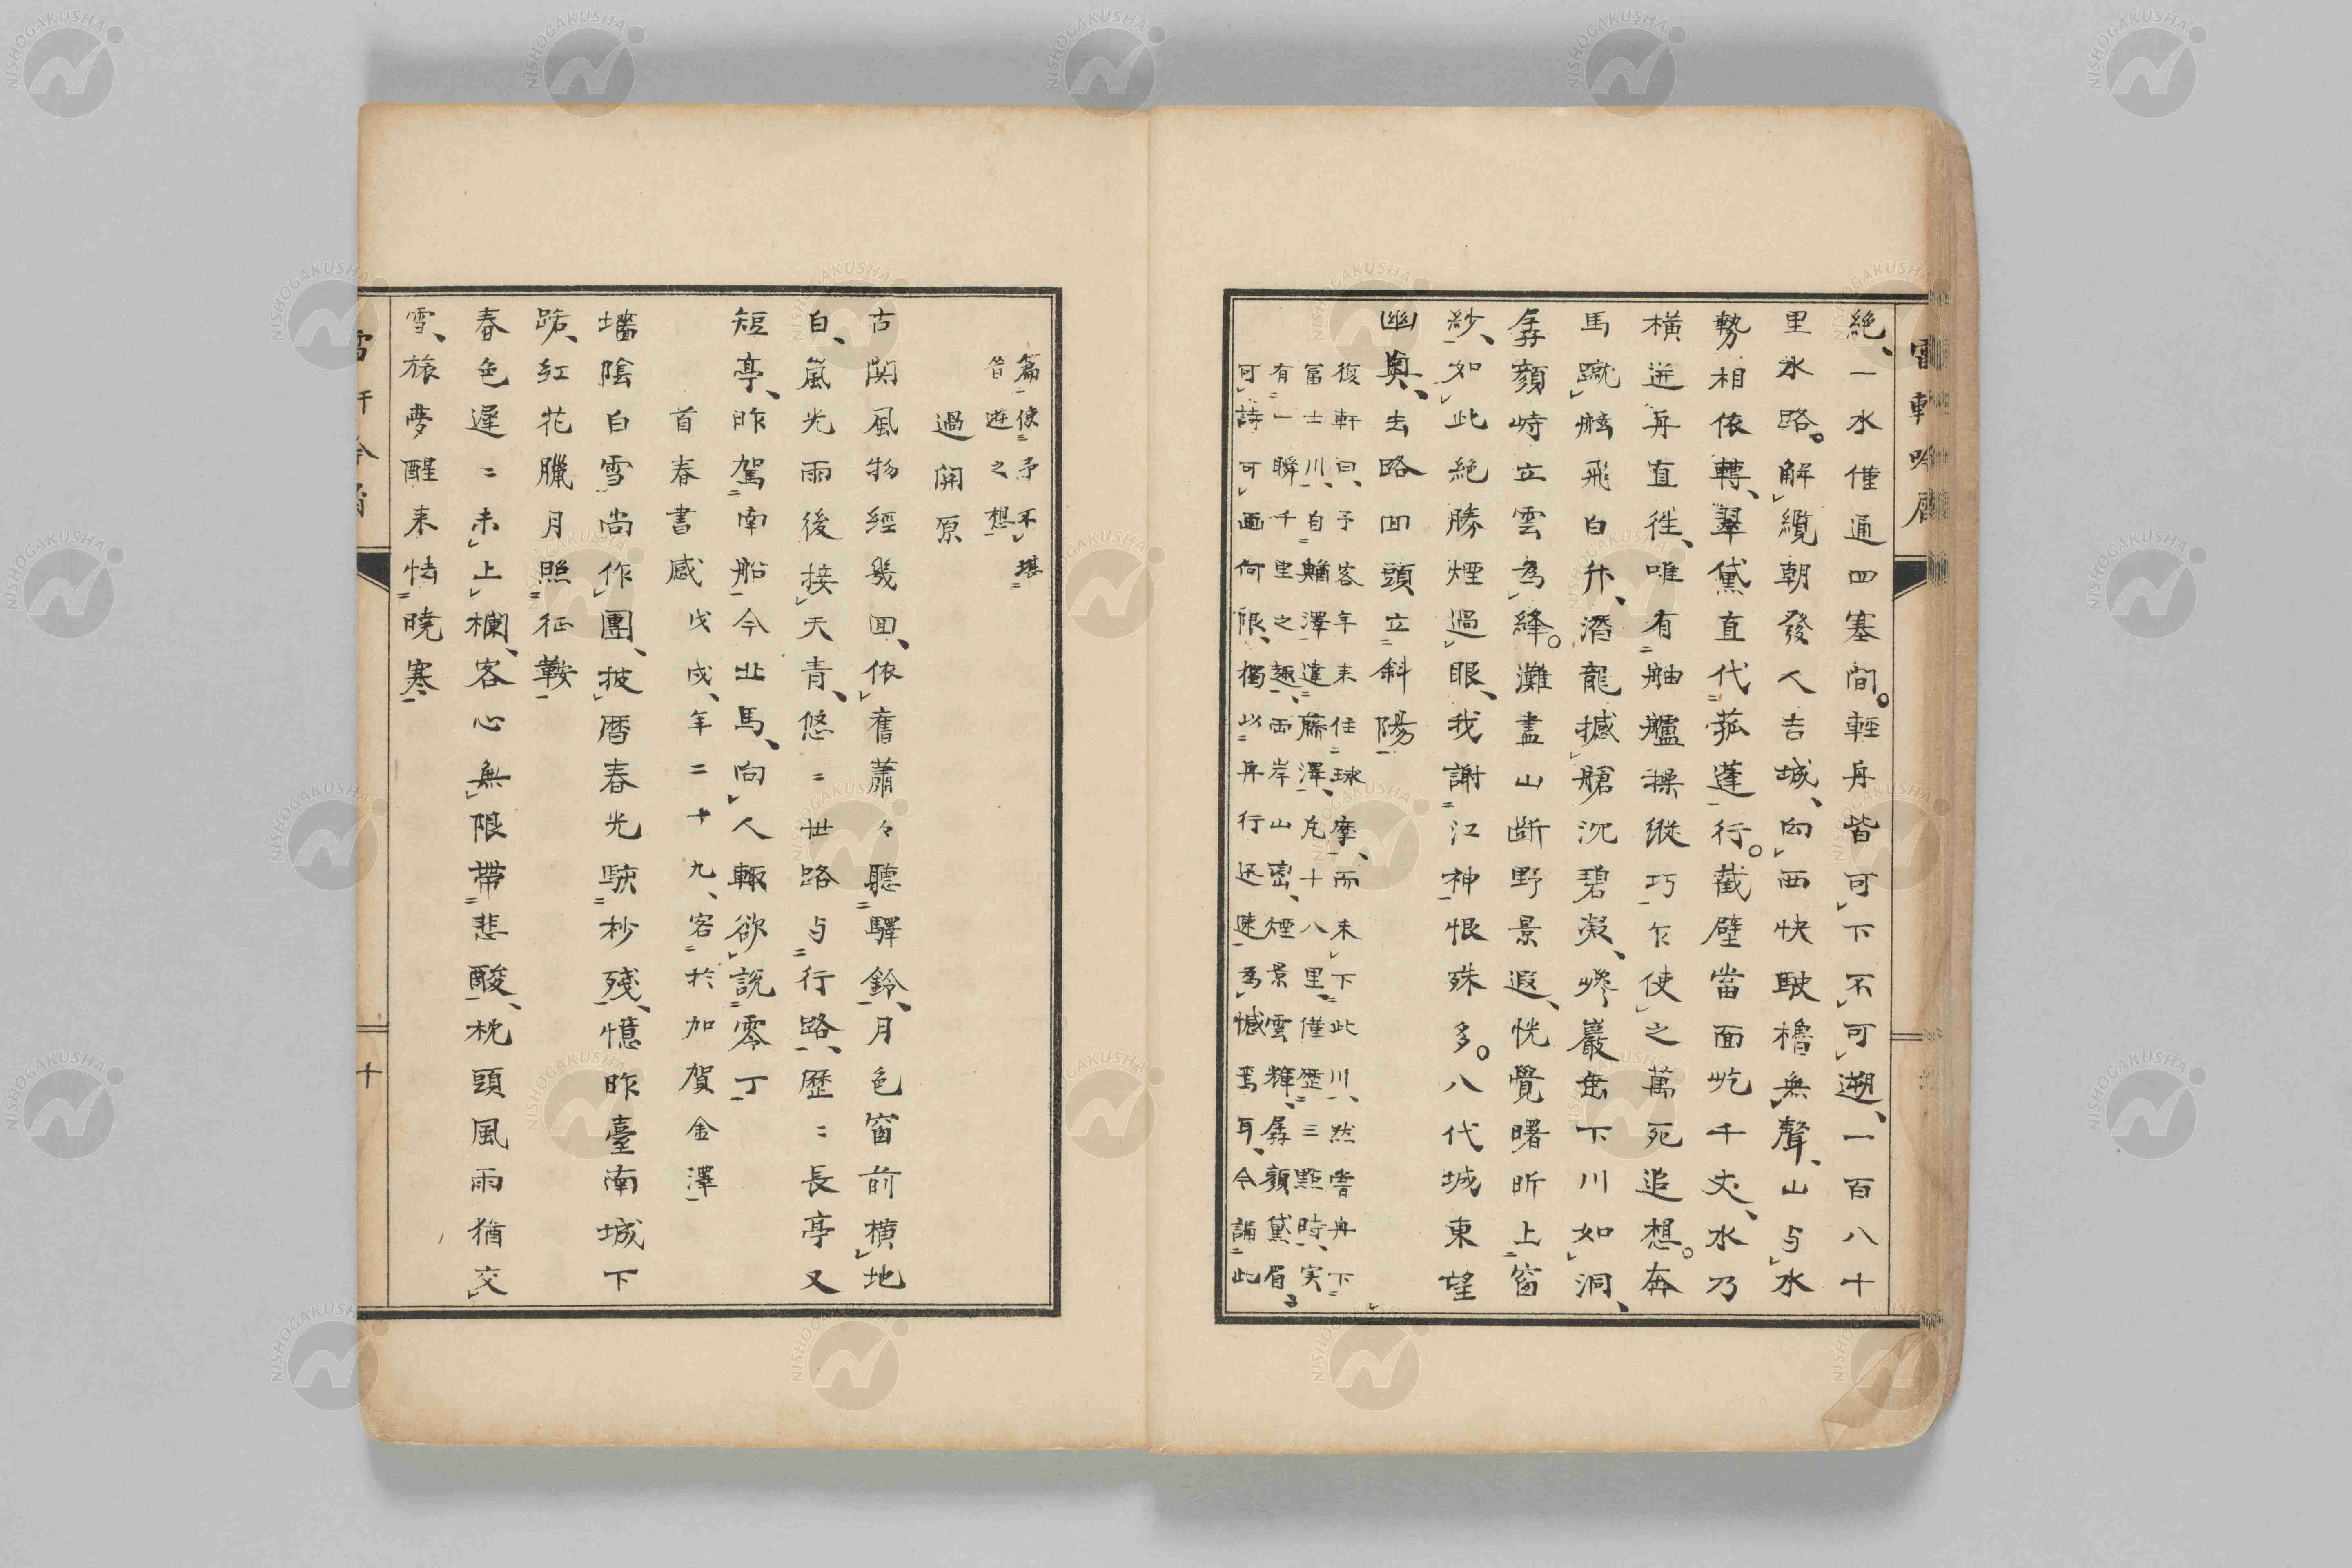 絶、一水僅通四塞間。輕舟皆可下不可遡、一百八十
里水路。解纜朝發人吉城、向西快駛櫓無聲、山与水
勢相依轉、翠黛直代菰蓬行。截壁當面屹千丈、水乃
橫迸舟直徃、唯有舳艫操縱巧乍使之萬死追想。奔
馬蹴舷飛白升、潛龍撼艙沉碧凝、嵾巖缶下川如洞、
孱顏峙立雲為縫。灘盡山断野景遐、恍覺曙昕上窗
紗、如此絶勝煙過眼、我謝江神恨殊多。八代城東望
幽奧、去路回頭立斜陽
復軒曰、予客年来任球摩、而来下此川、然嘗舟下
富士川、自鰍澤達藤澤、凡十八里、僅歴三點時、実
有一瞬千里之趣、両岸山密、煙景雲輝、孱顏黛眉
可詩可画何限、獨以舟行迅速為憾焉耳、今誦此
篇使予不堪
昔遊之想
過関原
古関風物經幾回、依舊蕭々聽驛鈴、月色窗前橫地
白、嵐光雨後接天青、悠〻世路与行路、歷〻長亭又
短亭、昨駕南船今北馬、向人輙欲說零丁
首春書感 戊戌、年二十九、客於加賀金澤
墻陰白雪尚作團、披暦春光駛杪殘、憶昨臺南城下
路、紅花臘月照征鞍
春色遲〻未上欄、客心無限帶悲酸、枕頭風雨猶交
雪、旅夢醒来怯曉寒
十